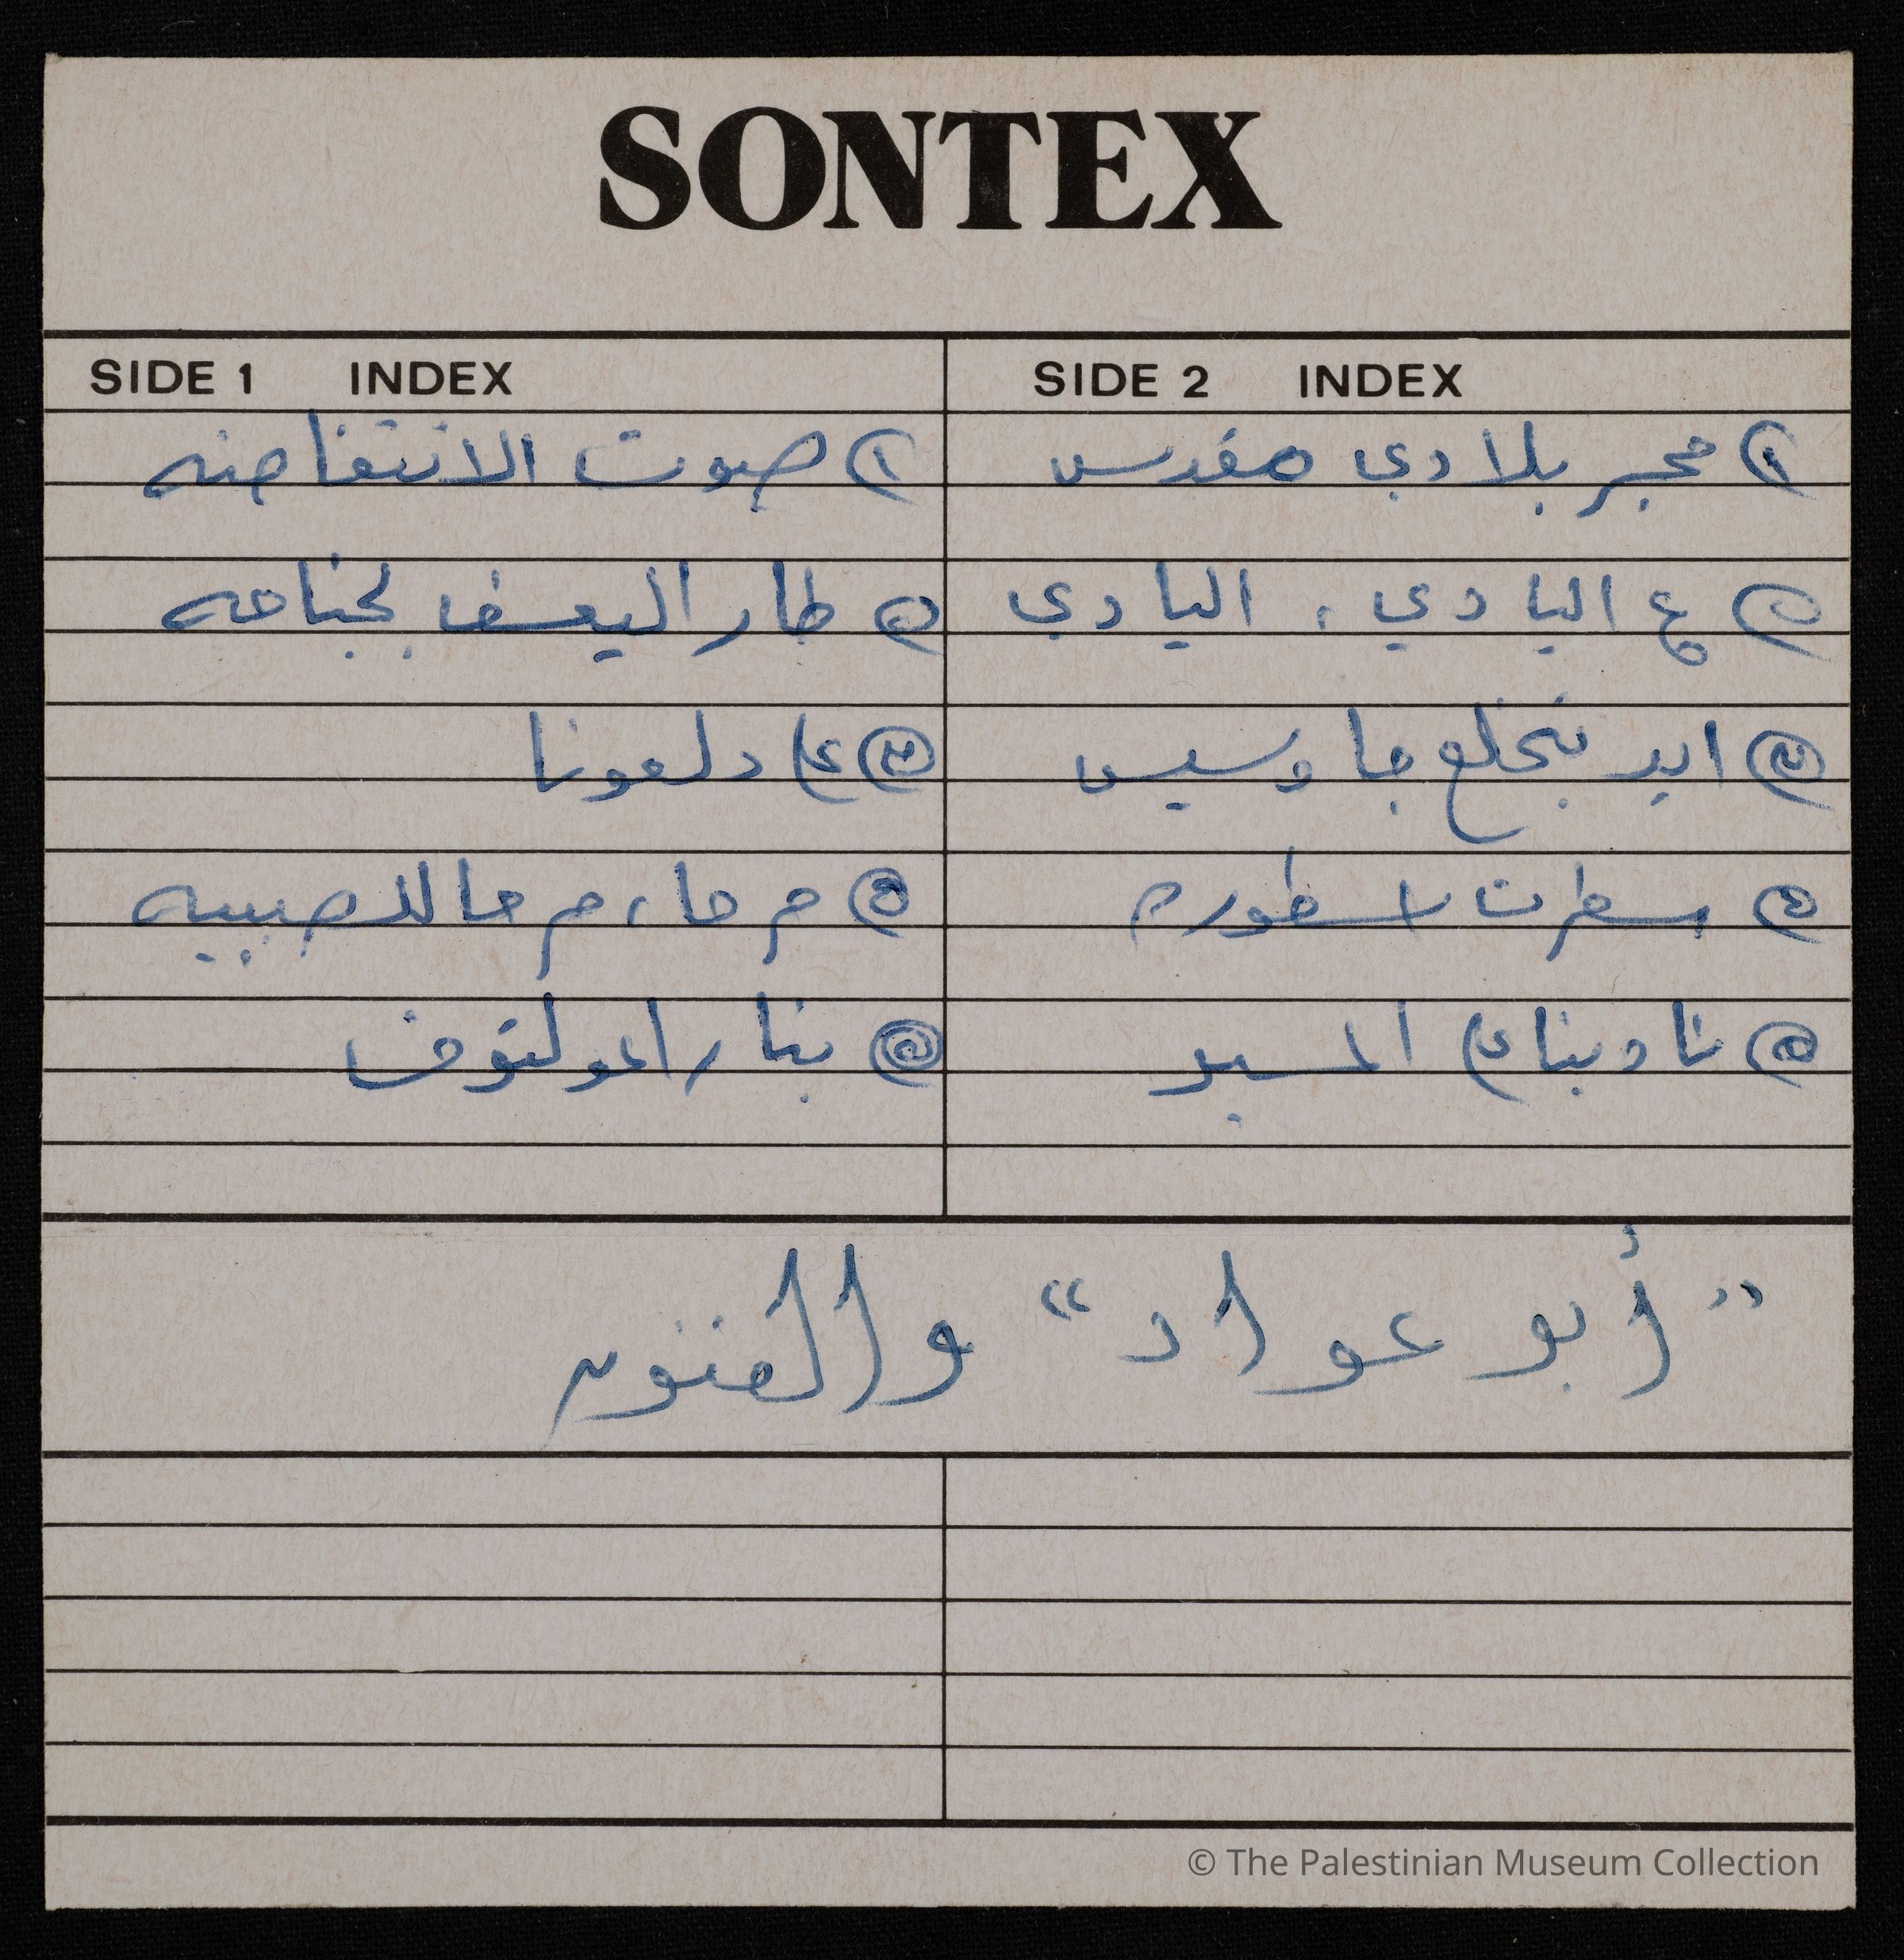 SONTEX
SIDE 1 INDEX
١) صوت الانتفاضه
٢) طار اليعسف بجناحه
٣) ع دلعونا
٤) مرحا، مرحا للصبيه
٥) بنار المولتوف
SIDE 2 INDEX
١) حجر بلادي مقدس
٢) ع اليادي، اليادي
٣) ايد بتخلع جاوسيس
٤) سطرت اسطوره
٥) نادينا ع السيد
"أبو عواد" والفنون
© The Palestinian Museum Collection